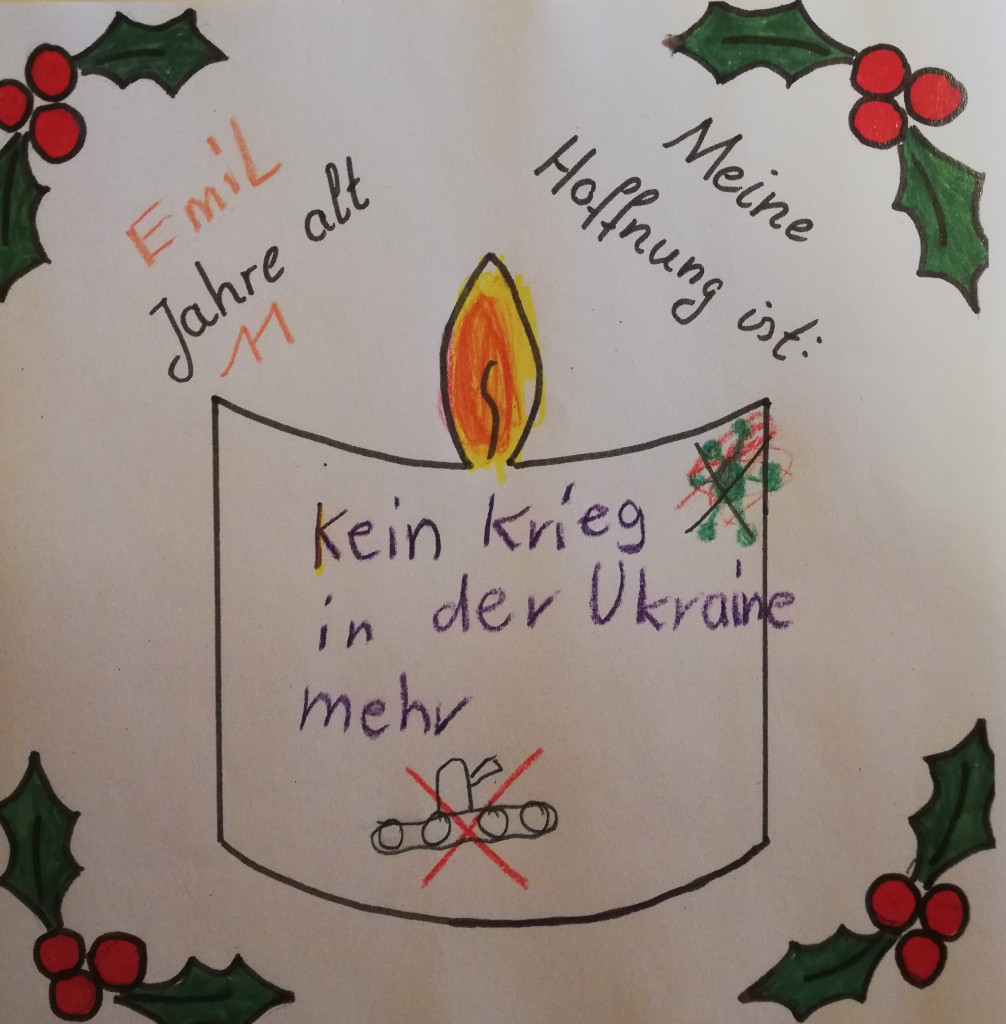 Emil
Jahre alt
11
Meine
Hoffnung ist:
Kein Krieg
in der Ukraine
mehr